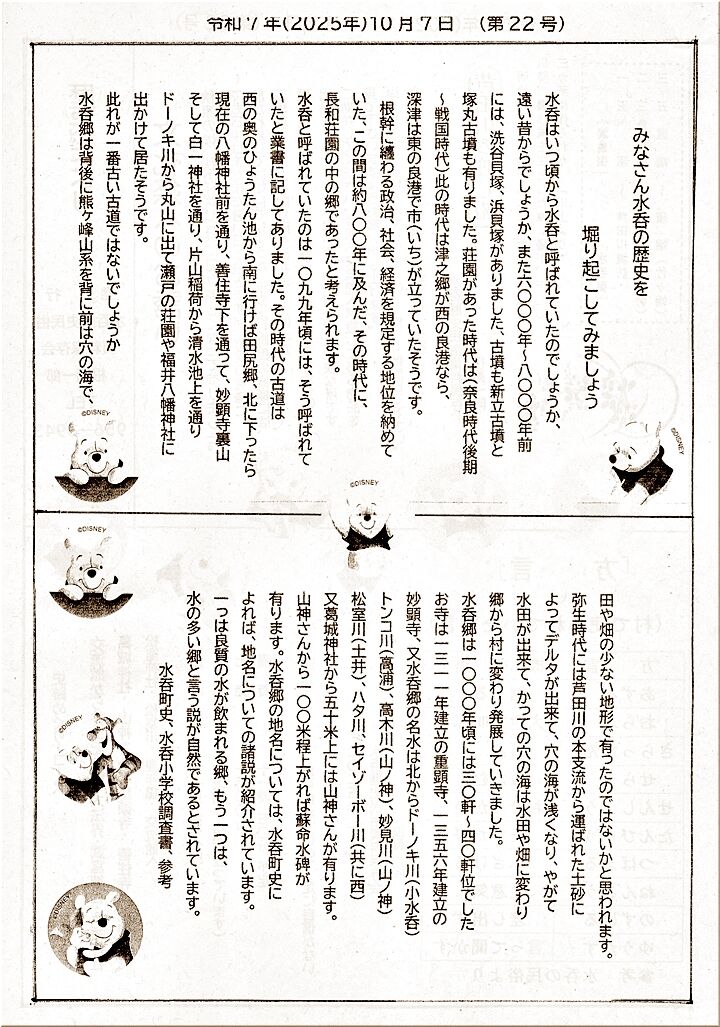 令和7年(2025年)10月7日 (第22号)
みなさん水呑の歴史を
掘り起こしてみましょう
水呑はいつ頃から水呑と呼ばれていたのでしょうか、
遠い昔からでしょうか、また六〇〇〇年～八〇〇〇年前
には、洗谷貝塚、浜貝塚がありました、古墳も新立古墳と
塚丸古墳も有りました。荘園があった時代は(奈良時代後期
～戦国時代)此の時代は津之郷が西の良港なら、
深津は東の良港で市(いち)が立っていたそうです。
根幹に纏わる政治、社会、経済を規定する地位を納めて
いた、この間は約八〇〇年に及んだ、その時代に、
長和荘園の中の郷であったと考えられます。
水呑と呼ばれていたのは一〇九九年頃には、そう呼ばれて
いたと業書に記してありました。その時代の古道は
西の奥のひょうたん池から南に行けば田尻郷、北に下ったら
現在の八幡神社前を通り、善住寺下を通って、妙顕寺裏山
そして白一神社を通り、片山稲荷から清水池上を通り
ドーノキ川から丸山に出て瀬戸の荘園や福井八幡神社に
出かけて居たそうです。
此れが一番古い古道ではないでしょうか
水呑郷は背後に熊ヶ峰山系を背に前は穴の海で、
©DISNEY
©DISNEY
©DISNEY
田や畑の少ない地形で有ったのではないかと思われます。
弥生時代には芦田川の本支流から運ばれた土砂に
よってデルタが出来て、穴の海が浅くなり、やがて
水田が出来て、かっての穴の海は水田や畑に変わり
郷から村に変わり発展していきました。
水呑郷は一〇〇〇年頃には三〇軒～四〇軒位でした
お寺は一三一一年建立の重顕寺、一三五六年建立の
妙顕寺、又水呑郷の名水は北からドーノキ川(小水呑)
トンコ川(高浦)、高木川(山ノ神)、妙見川(山ノ神)
松室川(土井)、ハタ川、セイゾーボー川(共に西)
又葛城神社から五十米上には山神さんが有ります。
山神さんから一〇〇米程上がれば蘇命水碑が
有ります。水呑郷の地名については、水呑町史に
よれば、地名についての諸説が紹介されています。
一つは良質の水が飲まれる郷、もう一つは、
水の多い郷と言う説が自然であるとされています。
水呑町史、水呑小学校調査書、参考
©DISNEY
©DISNEY
©DISNEY